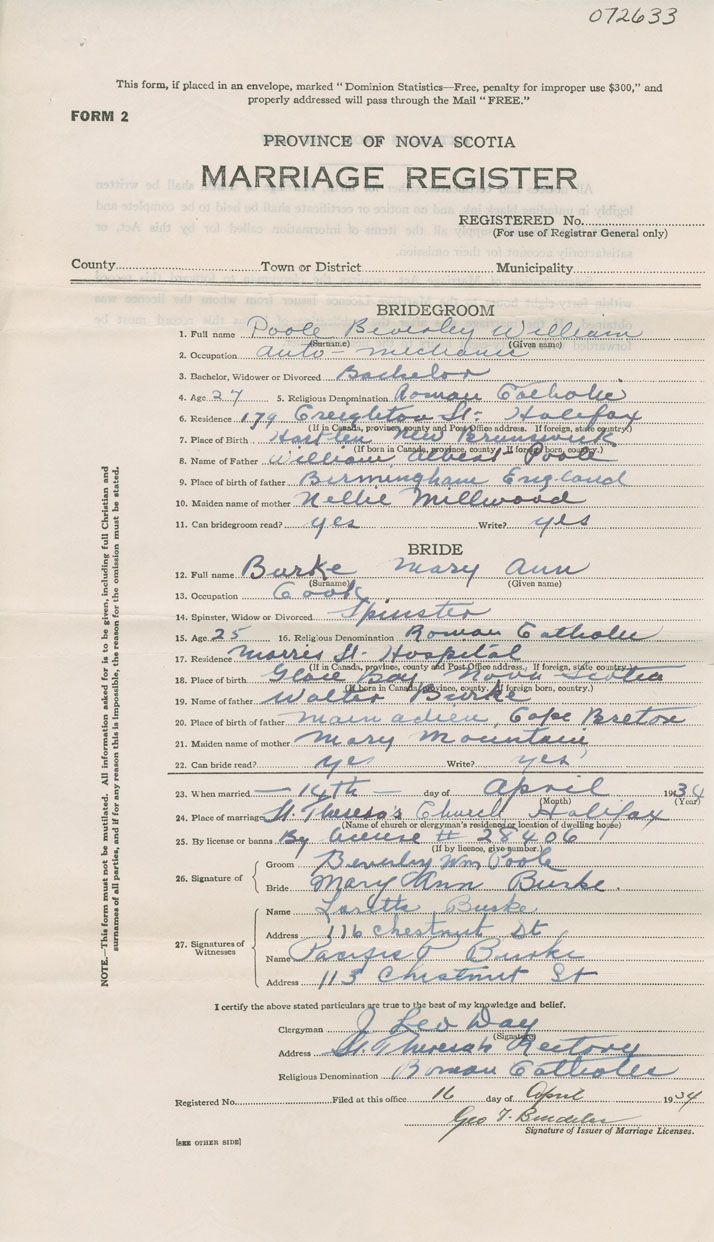 072633
This form, if placed in an envelope, marked "Dominion Statistics—Free, penalty for improper use $300," and
properly addressed will pass through the Mail "FREE."
FORM 2
PROVINCE OF NOVA SCOTIA
MARRIAGE REGISTER
REGISTERED No.
(For use of Registrar General only)
County Town or District Municipality
BRIDEGROOM
1. Full name Poole Beverley William
(Surname) (Given name)
2. Occupation auto-mechanic
3. Bachelor, Widower or Divorced Bachelor
4. Age 27 5. Religious Denomination Roman Catholic
6. Residence 179 Creighton St. Halifax
(If in Canada, province, county and Post Office address. If foreign, state country.)
7. Place of Birth Hartlen New Brunswick
(If born in Canada, province, county. If foreign born, country.)
8. Name of Father William Albert Poole
9. Place of birth of father Birmingham England
10. Maiden name of mother Nellie Millwood
11. Can bridegroom read? yes Write? yes
BRIDE
12. Full name Burke Mary Ann
(Surname) (Given name)
13. Occupation Cook
14. Spinster, Widow or Divorced Spinster
15. Age 25 16. Religious Denomination Roman Catholic
17. Residence Morris St. Hospital
(If in Canada, province, county and Post Office address. If foreign, state country.)
18. Place of birth Glace Bay Nova Scotia
(If born in Canada, province, county. If foreign born, country.)
19. Name of father Walter Burke
20. Place of birth of father Main adieu, Cape Breton
21. Maiden name of mother Mary Mountain
22. Can bride read? yes Write? yes
23. When married 14th day of April 1934
(Month) (Year)
24. Place of marriage St. Theresa's Church Halifax
(Name of church or clergyman's residence or location of dwelling house)
25. By license or banns By license # 28406
(If by licence, give number.)
26. Signature of Groom Beverley Wm Poole
Bride Mary Ann Burke
27. Signatures of Witnesses
Name Loretta Burke
Address 116 Chestnut St
Name Burke
Address 113 Chestnut St
I certify the above stated particulars are true to the best of my knowledge and belief.
Clergyman J Leo Day
(Signature)
Address St. Theresa's Rectory
Religious Denomination Roman Catholic
Registered No. Filed at this office 16 day of April 1934
Geo T.
Signature of Issuer of Marriage Licenses.
[SEE OTHER SIDE]
NOTE.—This form must not be mutilated. All information asked for is to be given, including full Christian and
surnames of all parties, and if for any reason this is impossible, the reason for the omission must be stated.